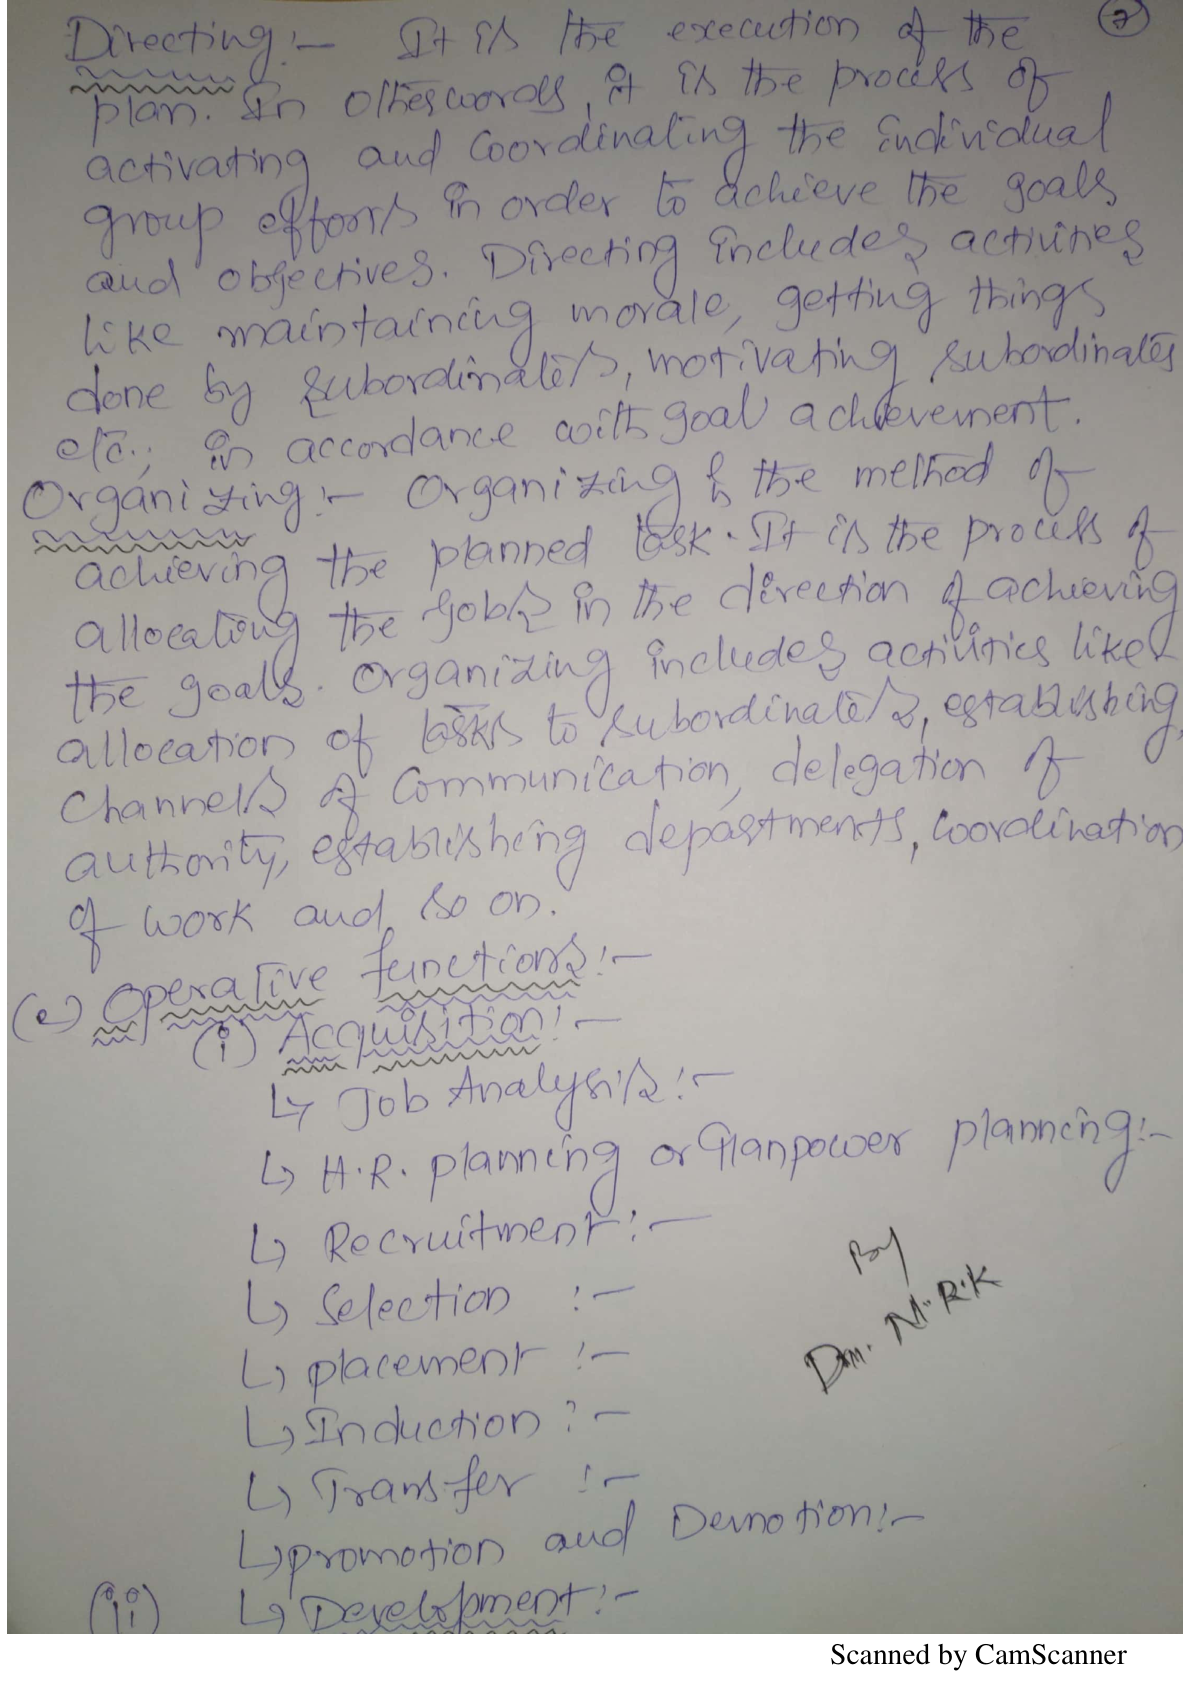 Directing :- It is the execution of the
plan. In other words, it is the process of
activating and coordinating the individual
group efforts in order to achieve the goals
and objectives. Directing includes activities
like maintaining morale, getting things
done by subordinates, motivating subordinates
etc., in accordance with goal achievement.
Organizing :- Organizing is the method of
achieving the planned task. It is the process of
allocating the jobs in the direction of achieving
the goals. Organizing includes activities like
allocation of tasks to subordinates, establishing
channels of communication, delegation of
authority, establishing departments, coordination
of work and so on.
Operative functions :-
(i) Acquisition :-
↳ Job Analysis :-
↳ H.R. planning or Manpower planning :-
↳ Recruitment :-
↳ Selection :-
↳ placement :-
↳ Induction :-
↳ Transfer :-
↳ promotion and Demotion :-
(ii) ↳ Development :-
By
M.R.K
Scanned by CamScanner